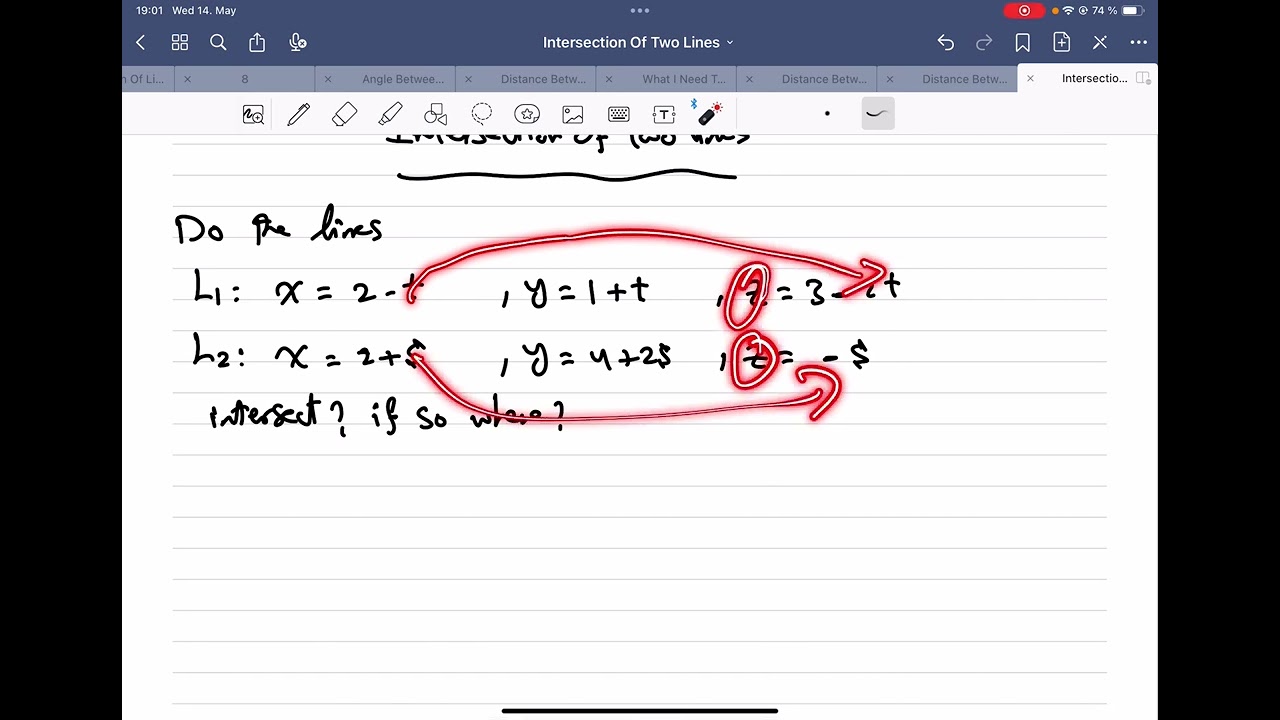 19:01 Wed 14. May 74 %
Intersection Of Two Lines
n Of Li... 8 Angle Betwee... Distance Betw... What I Need T... Distance Betw... Distance Betw... Intersectio...
Intersection of Two lines
Do the lines
L1: x = 2 - t , y = 1 + t , z = 3 - 2t
L2: x = 2 + s , y = 4 + 2s , z = - s
intersect? if so where?